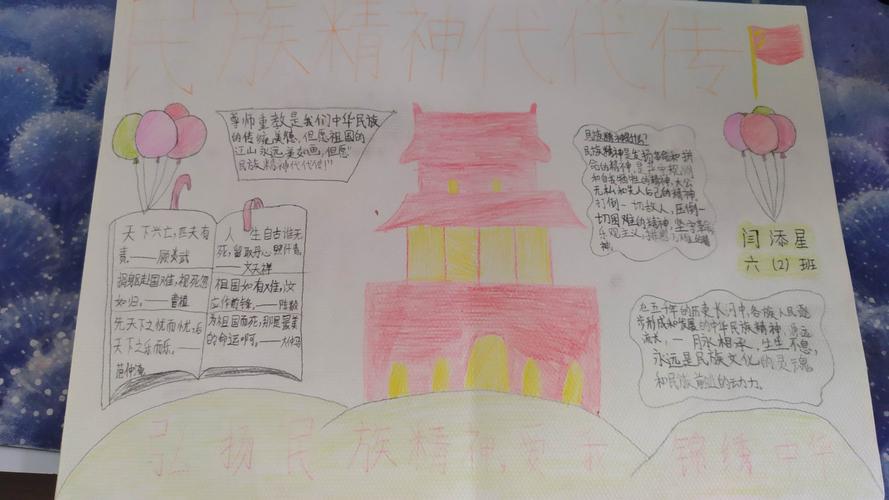 民族精神代代传
尊师重教是我们中华民族
的传统美德,但愿祖国的
江山永远美如画,但愿"
民族精神代代传!"
天下兴亡,匹夫有
责。——顾炎武
捐躯赴国难,视死忽
如归。——曹植
先天下之忧而忧,后
天下之乐而乐。——
范仲淹
人生自古谁无
死,留取丹心照汗青。
——文天祥
祖国如有难,汝
应作前锋。——陈毅
为祖国而死,那是最美
的命运啊。——大仲马
民族精神是什么?
民族精神是发扬革命和拼
命的精神,是
和自我牺牲的精神,大公
无私和先人后己的精神,
打倒一切敌人,压倒一
切困难的精神,坚守革命
乐观主义,排除万难的精
神。
闫添星
六(2)班
在五千年的历史长河中,各族人民逐
步形成和发展的中华民族精神,源远
流大,一脉相承,生生不息,
永远是民族文化的灵魂
和民族前业的动力。
弘扬民族精神,爱我锦绣中华